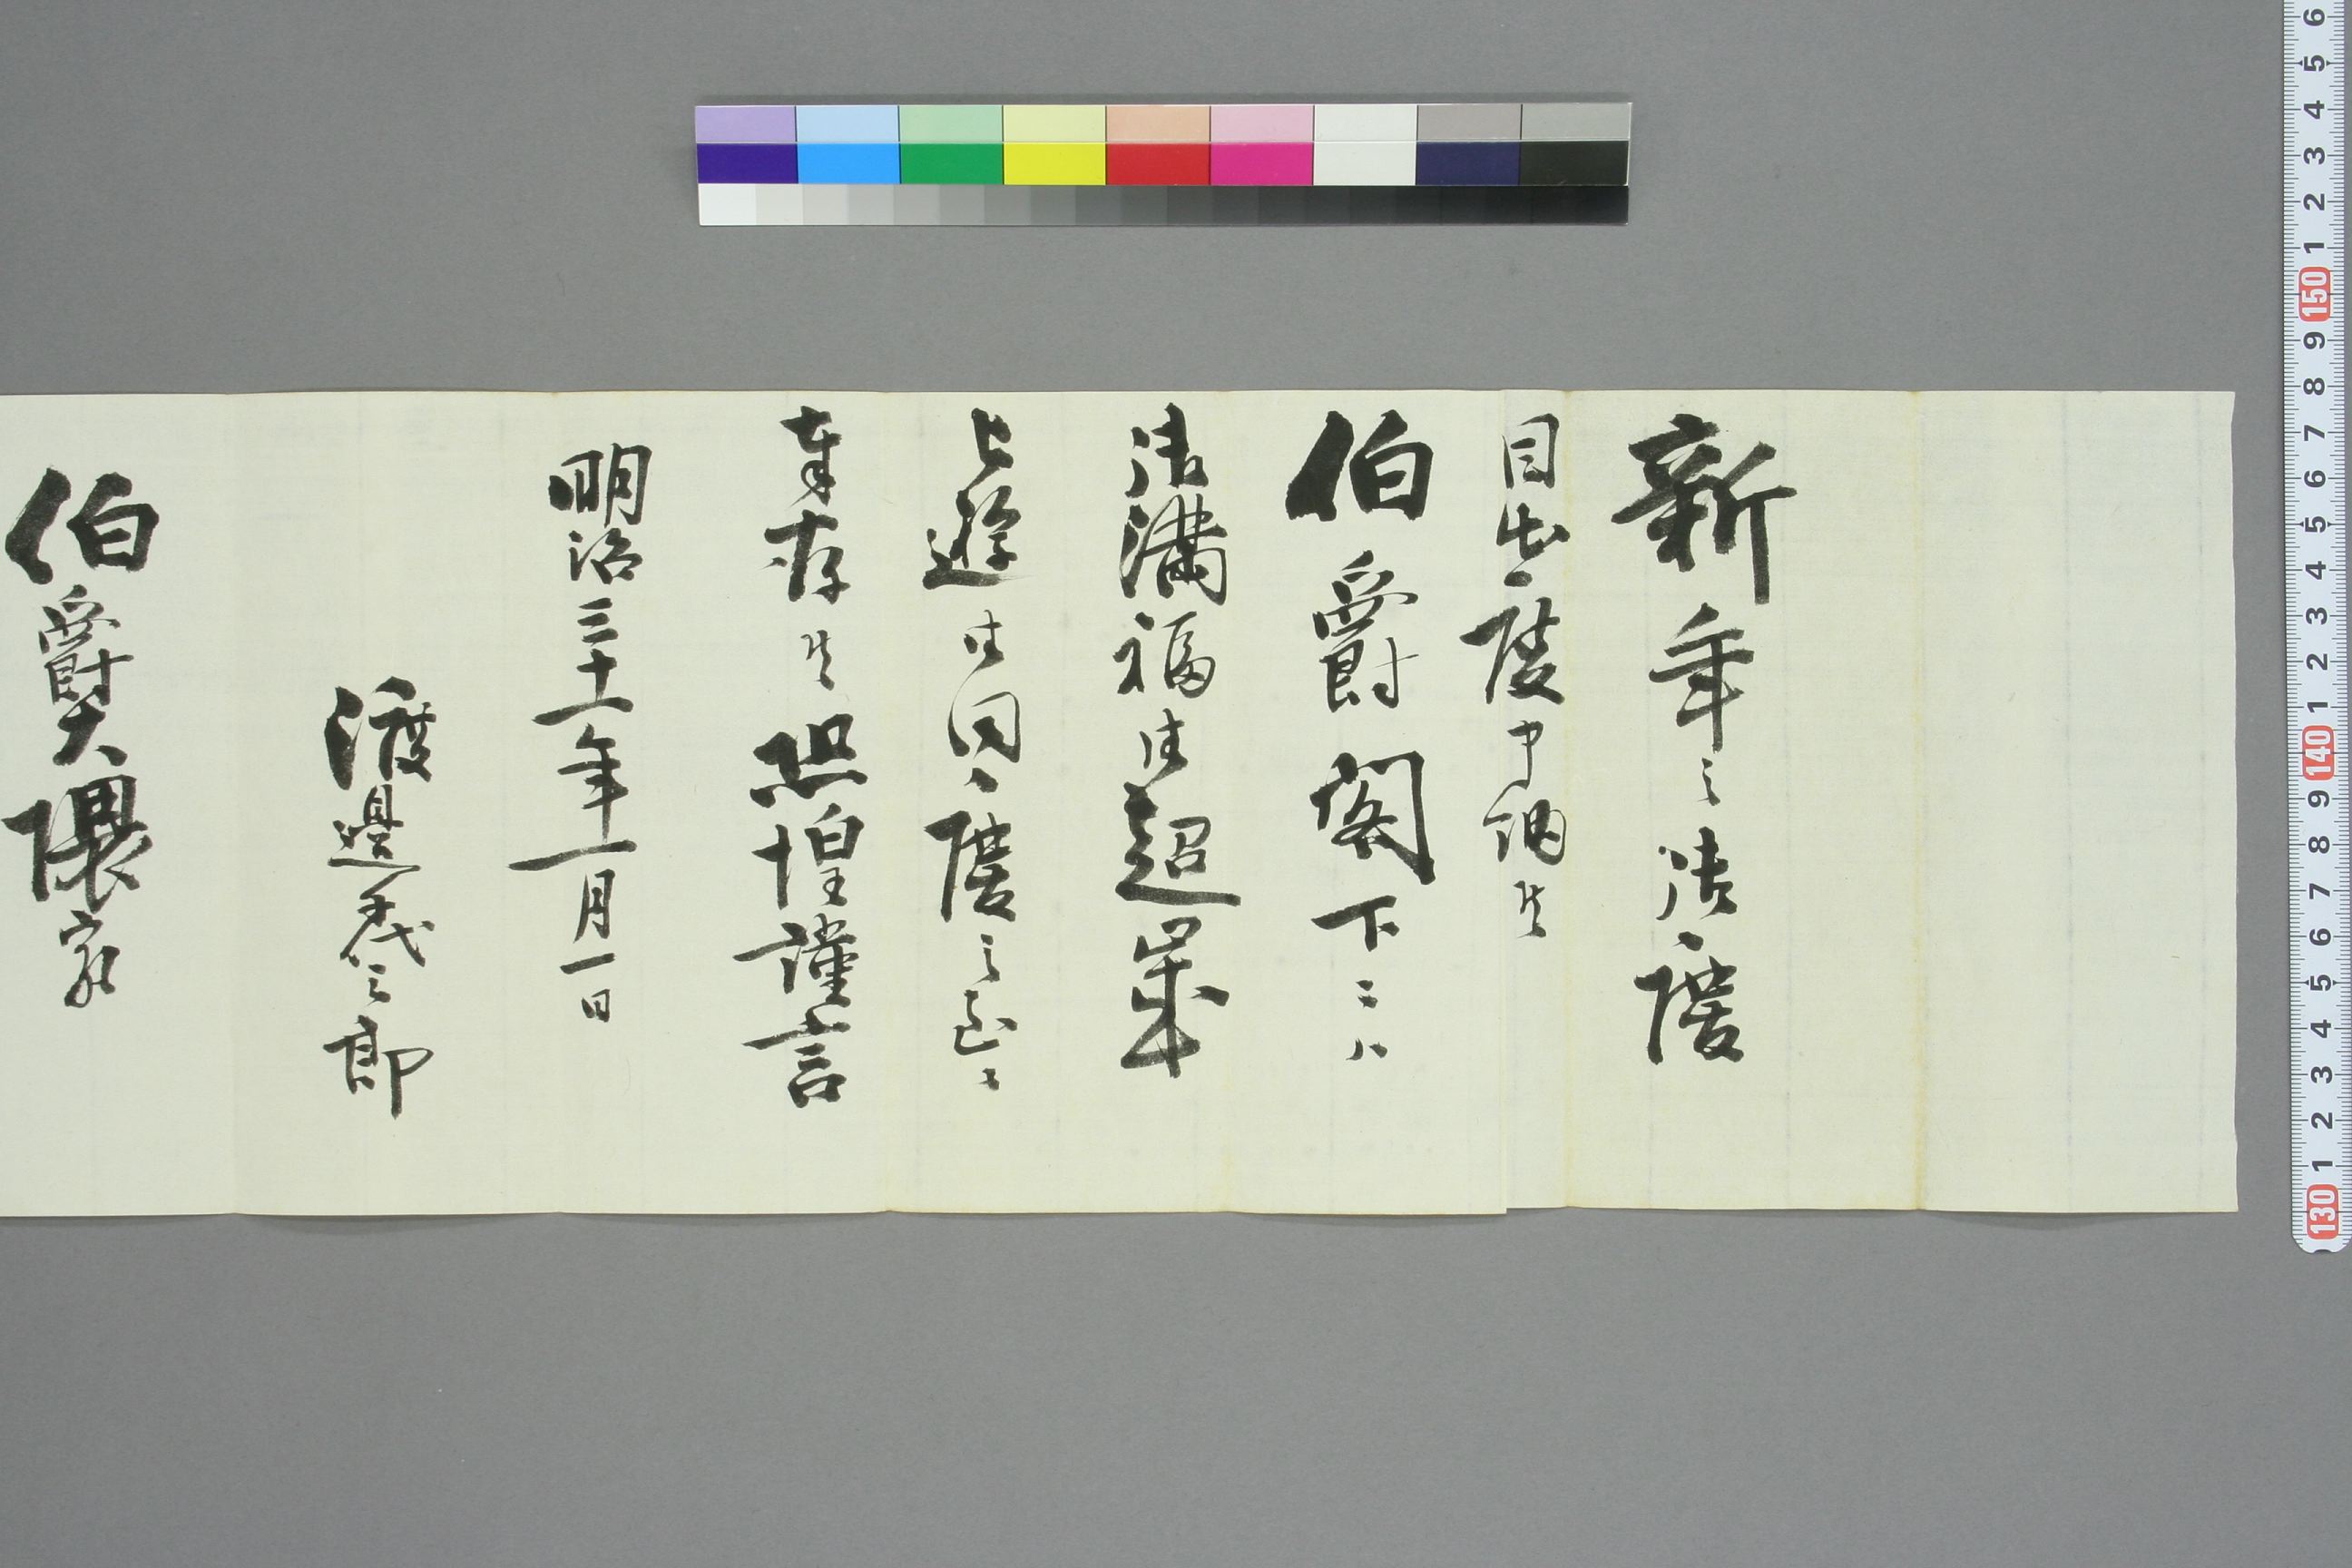 新年之御慶
目出度申納候
伯爵閣下ニハ
御滿福御超歳
被遊御同慶之至ニ
奉存候恐惶謹言
明治三十一年一月一日
渡邊千代三郎
伯爵大隈
6 5 4 3 2 1 150 9 8 7 6 5 4 3 2 1 140 9 8 7 6 5 4 3 2 1 130